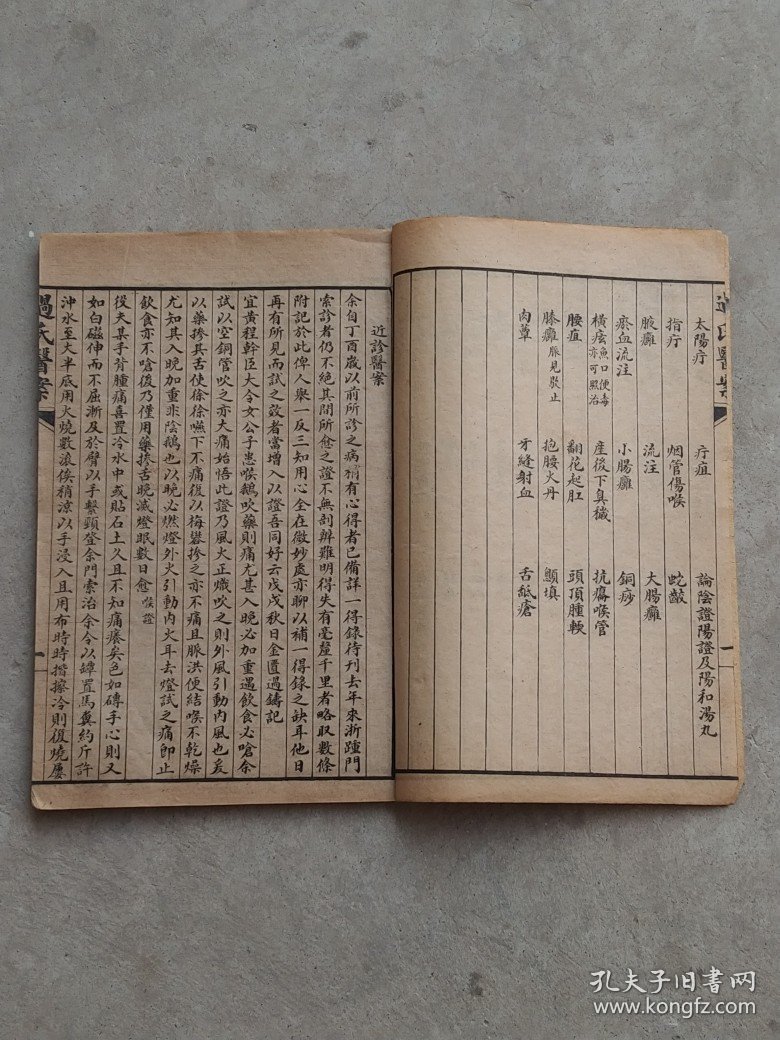 過氏醫案
一
太陽疔 疔疽 論陰證陽證及陽和湯丸
指疔 烟管傷喉 蛇皷
腋癰 流注 大腸癰
瘀血流注 小腸癰 銅痧
橫痃魚口便毒亦可照治 產後下臭穢 抗癘喉管
腰疽 翻花起肛 頭頂腫軟
膝癰脈見歇止 抱腰火丹 顋填
肉蕈 牙縫射血 舌䑛瘡
近診醫案
余自丁酉歲以前所診之病稍有心得者已備詳一得錄待刊去年來浙踵門
索診者仍不絕其間所愈之證不無剖辨難明得失有毫釐千里者略取數條
附記於此俾人舉一反三知用心全在微妙處亦聊以補一得錄之缺耳他日
再有所見而試之效者當增入以證吾同好云戊戌秋日金匱過鑄記
宜黃程幹臣大令女公子患喉鵝吹藥則痛尤甚入晚必加重遇飲食必嗆余
試以空銅管吹之亦大痛始悟此證乃風火正熾吹之則外風引動內風也爰
以藥摻其舌使徐徐嚥下不痛復以梅礬摻之亦不痛且脈洪便結喉不乾燥
尤知其入晚加重非陰鵝也以晚必燃燈外火引動內火耳去燈試之痛即止
飲食亦不嗆後乃僅用藥摻舌晚滅燈眠數日愈喉證
後夫某手背腫痛喜置冷水中或貼石土久且不知痛癢矣色如磚手心則又
如白磁伸而不屈漸及於臂以手繫頸登余門索治余令以罈置馬糞約斤許
沖水至大半底用火燒數滾俟稍涼以手浸入且用布時時揩擦冷則復燒屢
過氏醫案
一
孔夫子旧书网
www.kongfz.com